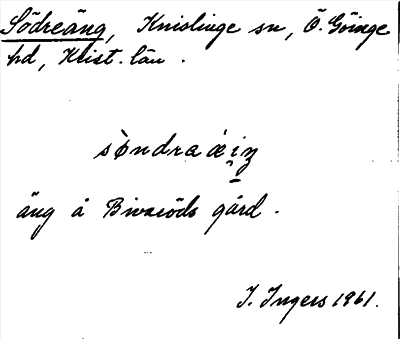 Södreäng, Knislinge sn, Ö. Göinge
hd, Krist. län.
sø̀ndraǽi̯ŋ
äng å Bivaröds gård.
I. Ingers 1961.